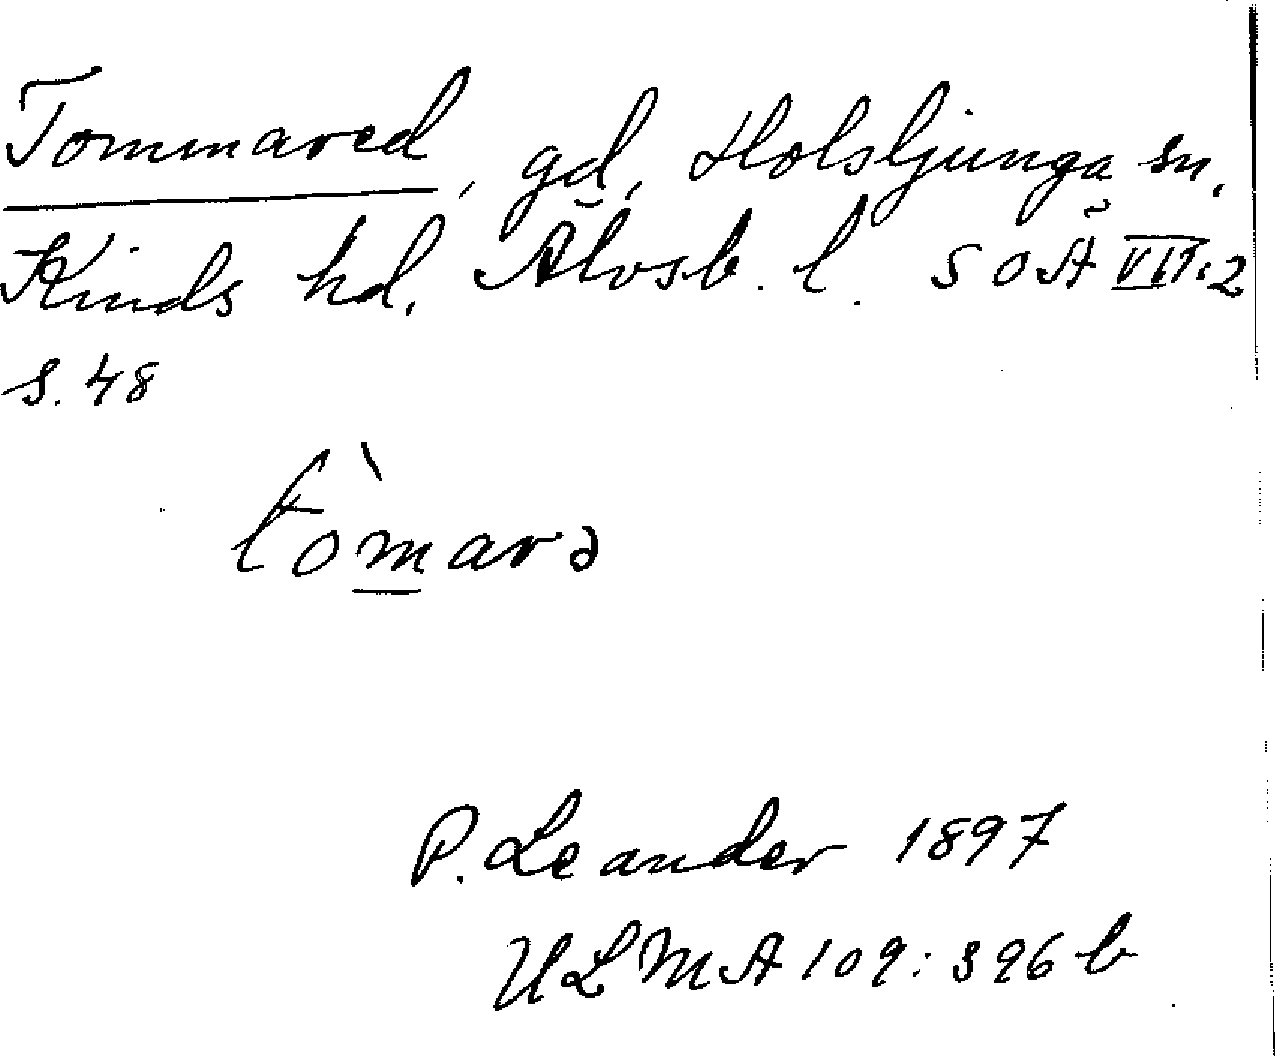 Tommared, gd, Holsljunga sn,
Kinds hd. Älvsb. l. SOÄ VII:2
s. 48
tòmarə
P. Leander 1897
ULMA 109: 396 b